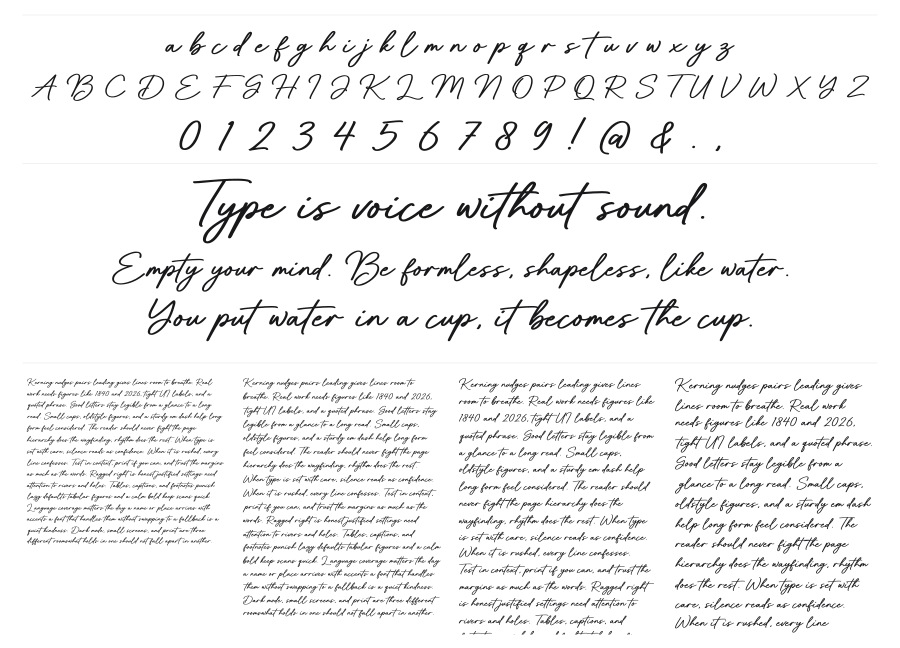 a b c d e f g h i j k l m n o p q r s t u v w x y z
A B C D E F G H I J K L M N O P Q R S T U V W X Y Z
0 1 2 3 4 5 6 7 8 9 ! @ & . ,
Type is voice without sound.
Empty your mind. Be formless, shapeless, like water.
You put water in a cup, it becomes the cup.
Kerning nudges pairs leading gives lines room to breathe. Real
work needs figures like 1840 and 2026, tight UI labels, and a
quoted phrase. Good letters stay legible from a glance to a long
read. Small caps, oldstyle figures, and a sturdy em dash help long
form feel considered. The reader should never fight the page
hierarchy does the wayfinding, rhythm does the rest. When type is
set with care, silence reads as confidence. When it is rushed, every
line confesses. Test in context, print if you can, and trust the margins
as much as the words. Ragged right is honest justified settings need
attention to rivers and holes. Tables, captions, and footnotes punish
lazy defaults tabular figures and a calm bold keep scans quick.
Language coverage matters the day a name or place arrives with
accents a font that handles them without swapping to a fallback is a
quiet kindness. Dark mode, small screens, and print are three
different rooms what holds in one should not fall apart in another.
Kerning nudges pairs leading gives lines room to
breathe. Real work needs figures like 1840 and 2026,
tight UI labels, and a quoted phrase. Good letters stay
legible from a glance to a long read. Small caps,
oldstyle figures, and a sturdy em dash help long form
feel considered. The reader should never fight the page
hierarchy does the wayfinding, rhythm does the rest.
When type is set with care, silence reads as confidence.
When it is rushed, every line confesses. Test in context,
print if you can, and trust the margins as much as the
words. Ragged right is honest justified settings need
attention to rivers and holes. Tables, captions, and
footnotes punish lazy defaults tabular figures and a calm
bold keep scans quick. Language coverage matters the day
a name or place arrives with accents a font that handles
them without swapping to a fallback is a quiet kindness.
Dark mode, small screens, and print are three different
rooms what holds in one should not fall apart in another.
Kerning nudges pairs leading gives lines
room to breathe. Real work needs figures like
1840 and 2026, tight UI labels, and a
quoted phrase. Good letters stay legible from
a glance to a long read. Small caps,
oldstyle figures, and a sturdy em dash help
long form feel considered. The reader should
never fight the page hierarchy does the
wayfinding, rhythm does the rest. When type
is set with care, silence reads as confidence.
When it is rushed, every line confesses.
Test in context, print if you can, and trust the
margins as much as the words. Ragged right
is honest justified settings need attention to
rivers and holes. Tables, captions, and
Kerning nudges pairs leading gives
lines room to breathe. Real work
needs figures like 1840 and 2026,
tight UI labels, and a quoted phrase.
Good letters stay legible from a
glance to a long read. Small caps,
oldstyle figures, and a sturdy em dash
help long form feel considered. The
reader should never fight the page
hierarchy does the wayfinding, rhythm
does the rest. When type is set with
care, silence reads as confidence.
When it is rushed, every line